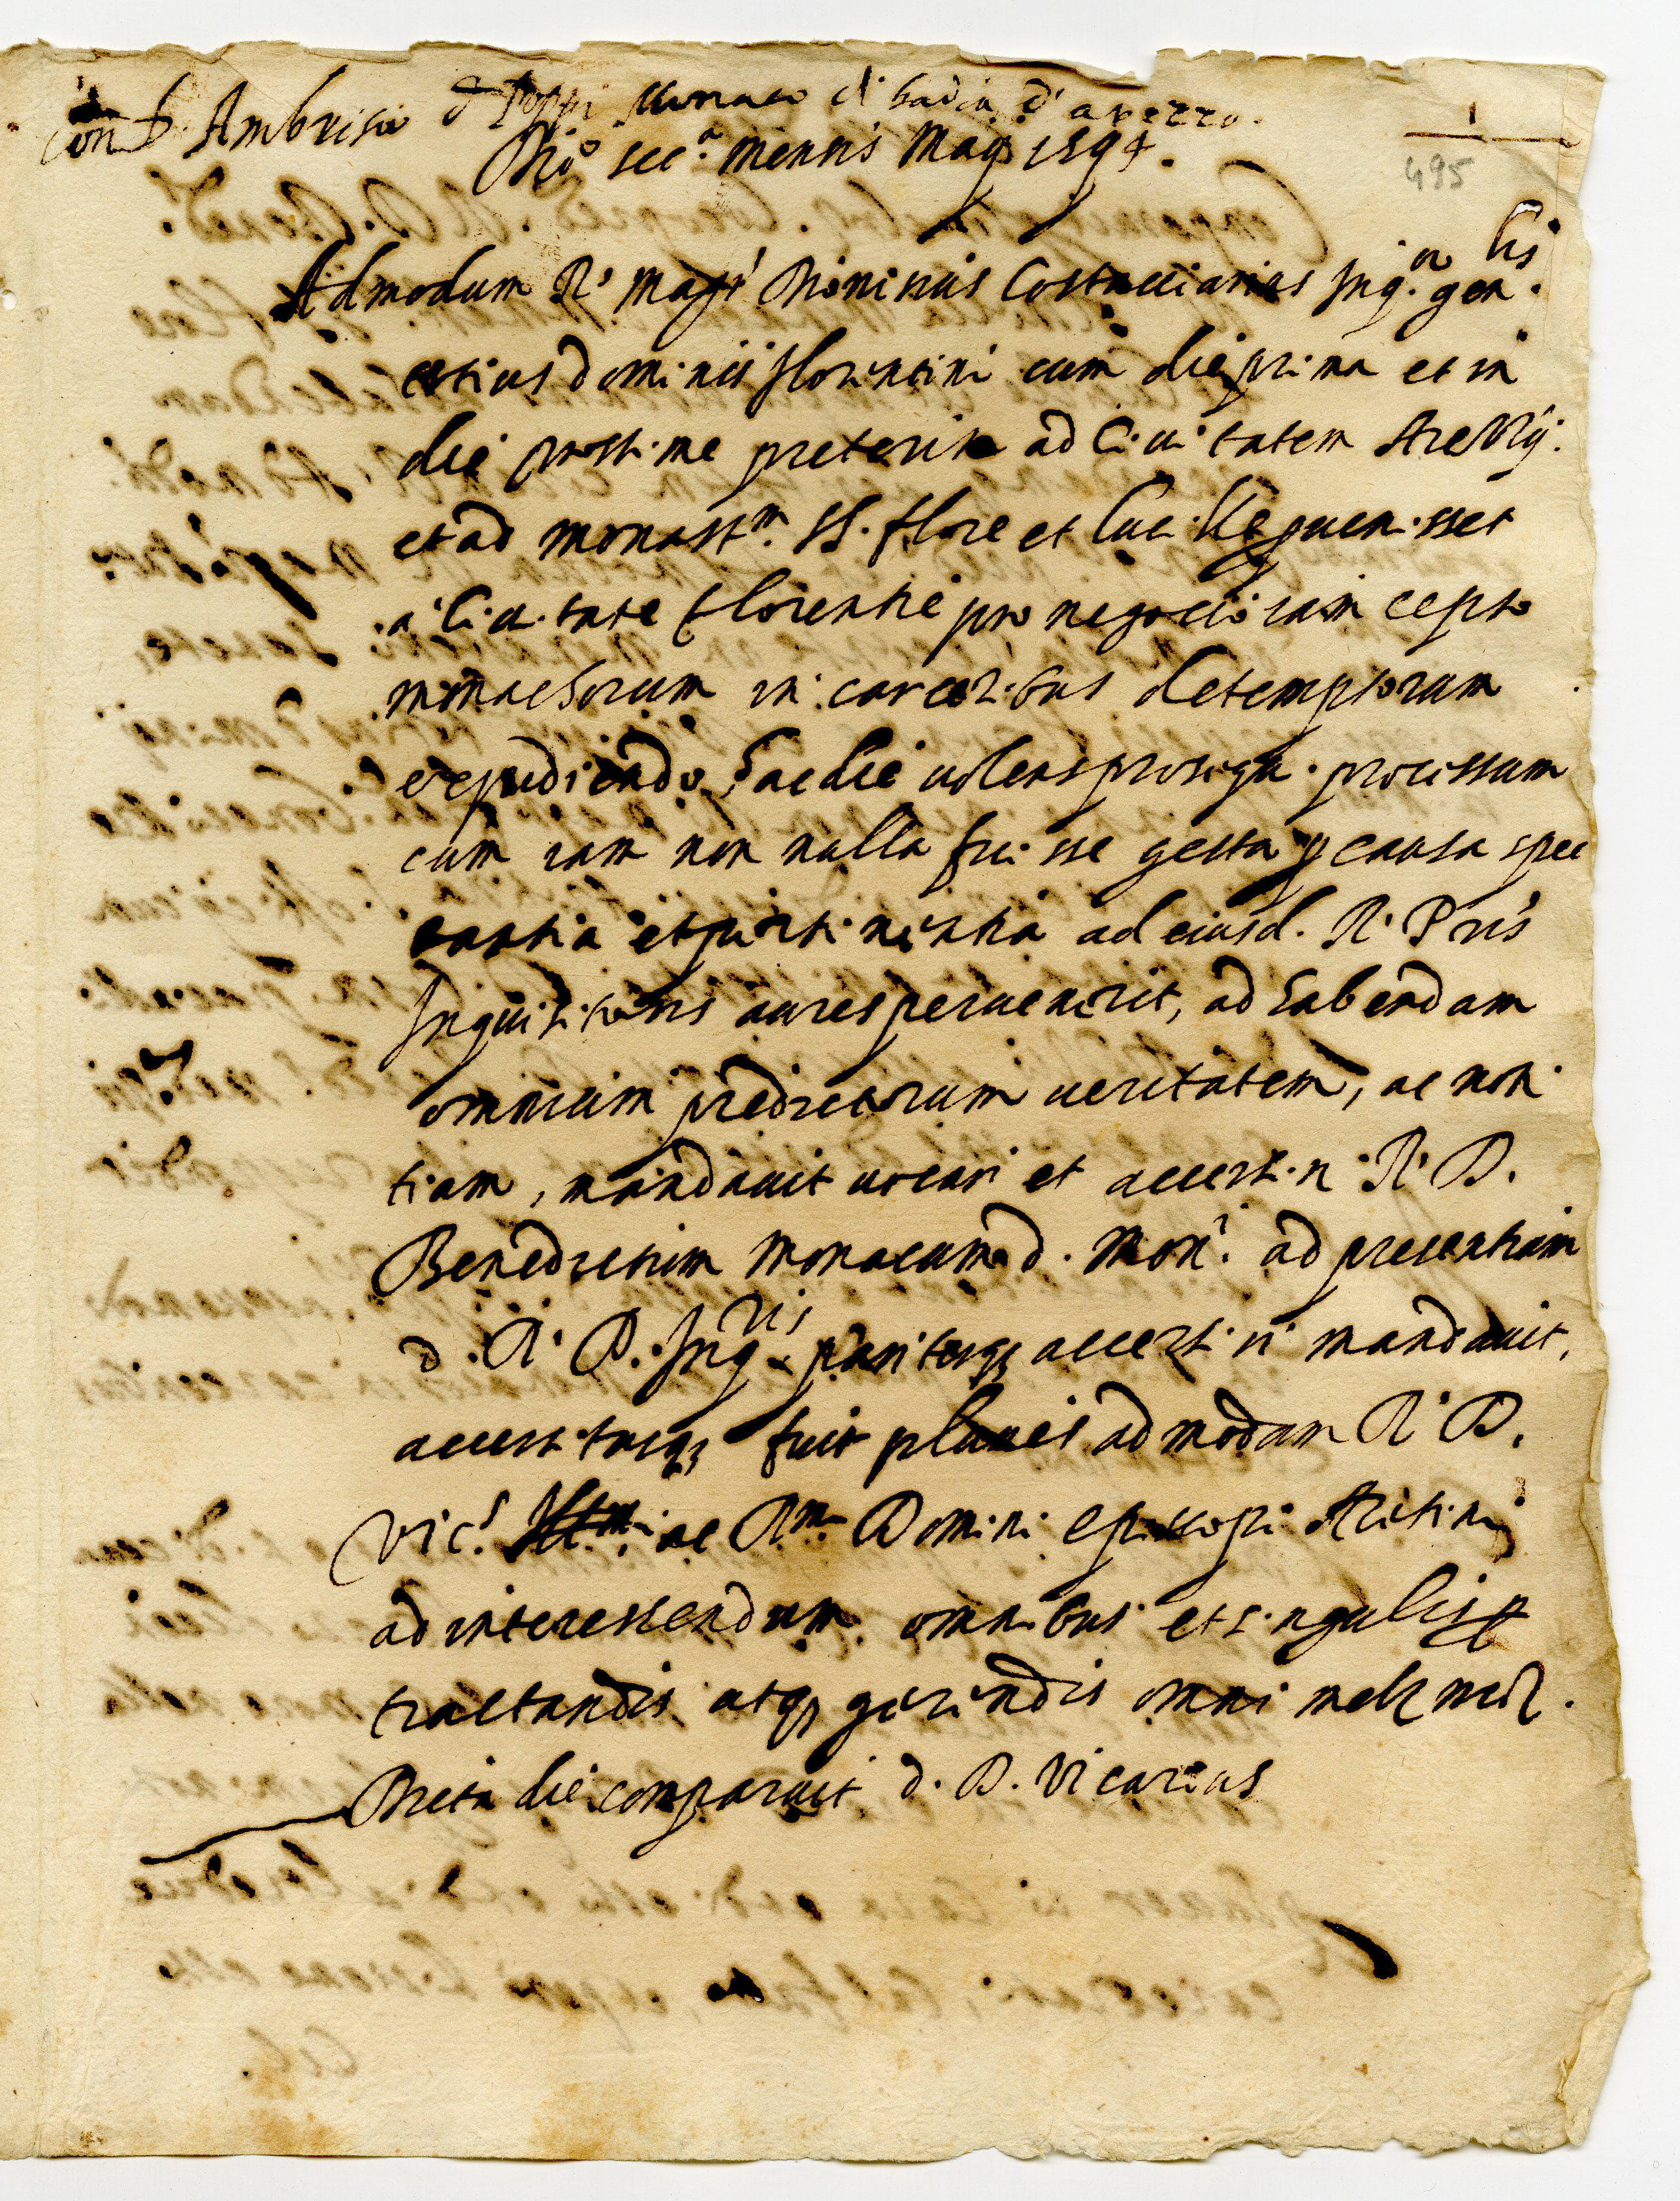 con D. Ambrisio d Poppi monaco di badia d'arezzo.
1
Die sec.a mensis Maij 1594.
495
Admodum R.s Mag.r Dionisius Costacciarius Inq.or gen.lis
totius dominii florentini cum die prima et in
die prossime preterita ad Civitatem Aretij.
et ad monast.m SS. flore et lucille peruenisset
a Ciuitate florentie pro negocio iam cepto
monachorum in carceribus detemptorum
expediendo, hac die uolens prosequi processum
cum iam non nulla fuisse gesta p causa spec
tantia et pertinentia ad eiusd. R. Pris
Inquisitoris aures peruenerit, ad habendam
omnium predictorum ueritatem, ac noti
tiam, mandauit uocari et accersiri R. D.
Benedictum Monacum d. Mon.i ad presentiam
d. R. P. Inq.ris pariterq accersiri mandauit,
accersitusq fuit admodum R. D.
Vic.s Ill.mi ac R.mi Domini episcopi Aretini
ad interessendum omnibus et singulis
tractandis atq gerendis omni mel mod.
Dicta die comparuit d. D. Vicarius